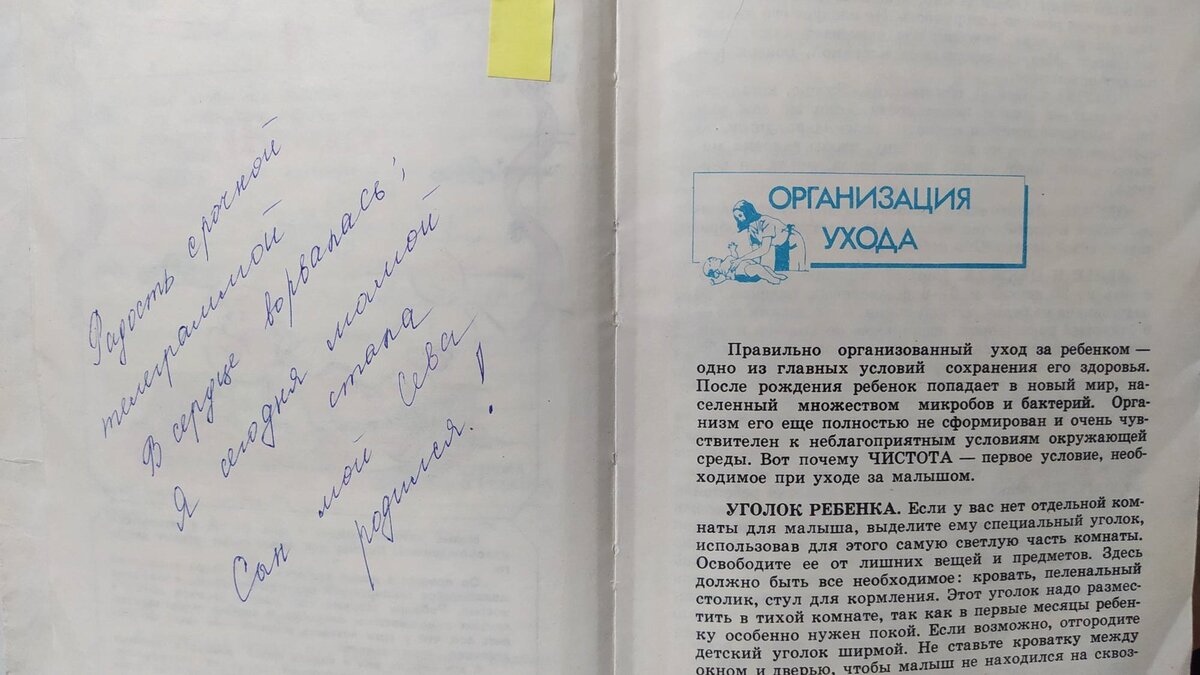 Радость срочной
телеграммой
В сердце ворвалась;
Я сегодня мамой
стала
Сын мой Сева
родился!
ОРГАНИЗАЦИЯ
УХОДА
Правильно организованный уход за ребенком —
одно из главных условий сохранения его здоровья.
После рождения ребенок попадает в новый мир, на-
селенный множеством микробов и бактерий. Орга-
низм его еще полностью не сформирован и очень чув-
ствителен к неблагоприятным условиям окружающей
среды. Вот почему ЧИСТОТА — первое условие, необ-
ходимое при уходе за малышом.
УГОЛОК РЕБЕНКА. Если у вас нет отдельной ком-
наты для малыша, выделите ему специальный уголок,
использовав для этого самую светлую часть комнаты.
Освободите ее от лишних вещей и предметов. Здесь
должно быть все необходимое: кровать, пеленальный
столик, стул для кормления. Этот уголок надо размес-
тить в тихой комнате, так как в первые месяцы ребен-
ку особенно нужен покой. Если возможно, отгородите
детский уголок ширмой. Не ставьте кроватку между
окном и дверью, чтобы малыш не находился на сквоз-